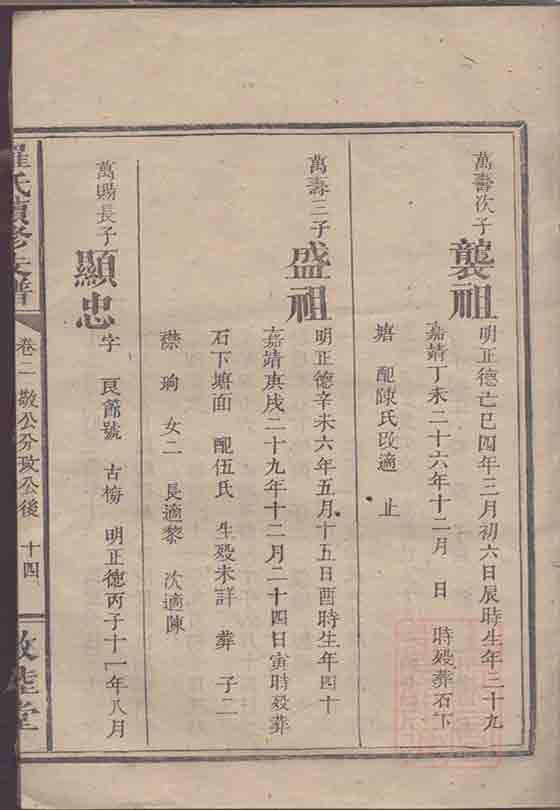 萬壽次子
襲祖
明正德己巳四年三月初六日辰時生年三十九
嘉靖丁未二十六年十二月 日 時歿葬石下
塘 配陳氏改適 止
萬壽三子
盛祖
明正德辛未六年五月十五日酉時生年四十
嘉靖庚戌二十九年十二月二十四日寅時歿葬
石下塘面 配伍氏 生歿未詳 葬 子二
襟 珣 女二 長適黎 次適陳
萬賜長子
顯忠
字 艮節號 古榆 明正德丙子十一年八月
羅氏續修支譜
卷二 敬公分政公後 十四
敦睦堂